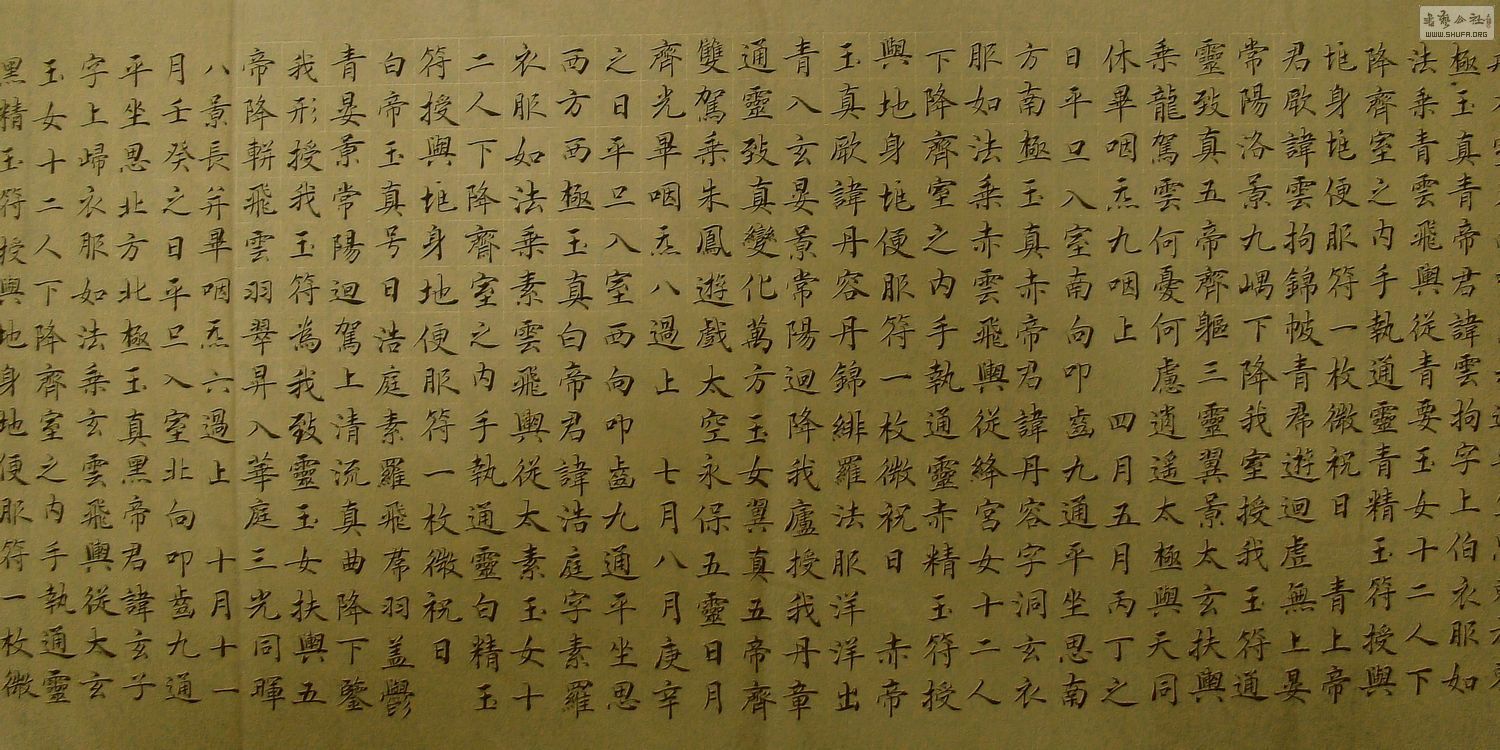 極玉真青帝君諱雲拘字上伯衣服如
法乘青雲飛輿從青要玉女十二人下
降齊室之內手執通靈青精玉符授與
地身地便服符一枚微祝曰　青上帝
君厥諱雲拘錦帔青帬遊迴虛無上晏
常陽洛景九嵎下降我室授我玉符通
靈致真五帝齊軀三靈翼景太玄扶輿
乘龍駕雲何憂何慮逍遙太極與天同
休畢咽炁九咽止　四月五月丙丁之
日平旦入室南向叩齒九通平坐思南
方南極玉真赤帝君諱丹容字洞玄衣
服如法乘赤雲飛輿從絳宮女十二人
下降齊室之內手執通靈赤精玉符授
與地身地便服符一枚微祝曰　赤帝
玉真厥諱丹容丹錦緋羅法服洋洋出
青入玄晏景常陽迴降我廬授我丹章
通靈致真變化萬方玉女翼真五帝齊
雙駕乘朱鳳遊戲太空永保五靈日月
齊光畢咽炁八過止　七月八月庚辛
之日平旦入室西向叩齒九通平坐思
西方西極玉真白帝君諱浩庭字素羅
衣服如法乘素雲飛輿從太素玉女十
二人下降齊室之內手執通靈白精玉
符授與地身地便服符一枚微祝曰
白帝玉真号曰浩庭素羅飛帬羽蓋鬱
青晏景常陽迴駕上清流真曲降下鑒
我形授我玉符為我致靈玉女扶輿五
帝降軿飛雲羽翠昇入華庭三光同暉
八景長并畢咽炁六過止　十月十一
月壬癸之日平旦入室北向叩齒九通
平坐思北方北極玉真黑帝君諱玄子
字上歸衣服如法乘玄雲飛輿從太玄
玉女十二人下降齊室之內手執通靈
黑精玉符授與地身地便服符一枚微
WWW.SHUFA.ORG